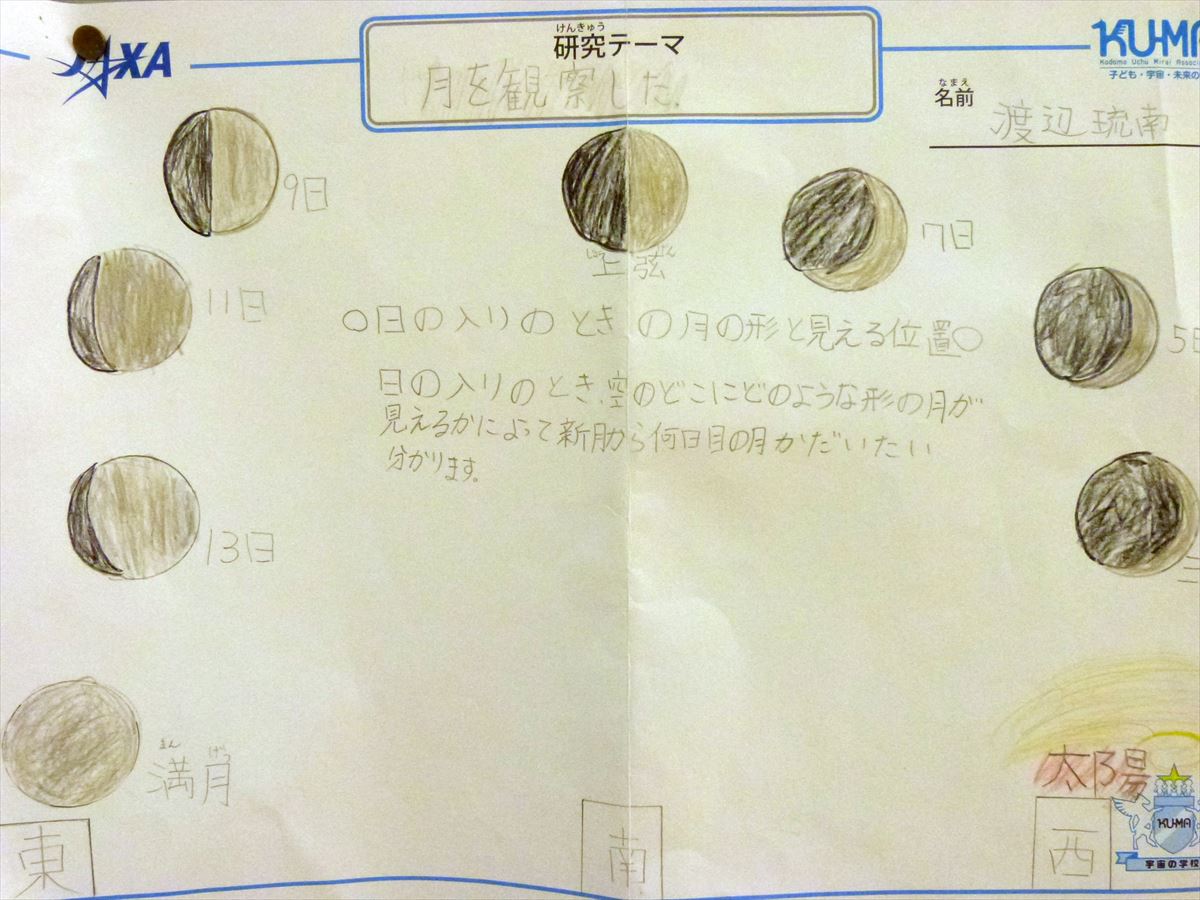 JAXA
けんきゅう
研究テーマ
月を観察した.
KU-MA
Kodomo Uchu Mirai Associ
子ども・宇宙・未来の
なまえ
名前
渡辺琉南
9日
上弦
7日
11日
5日
○日の入りのときの月の形と見える位置○
日の入りのとき、空のどこにどのような形の月が
見えるかによって新月から何日目の月かだいたい
分かります。
13日
三
まん げつ
満月
太陽
東
南
西
KU-MA
宇宙の学校